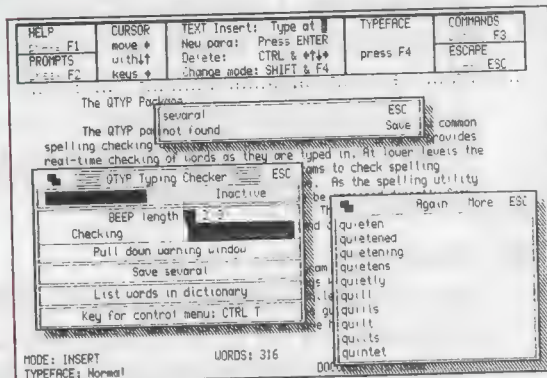 HELP
F1
PROMPTS
F2
CURSOR
move
with
keys
TEXT Insert: Type at
New para: Press ENTER
Delete: CTRL &
Change mode: SHIFT & F4
TYPEFACE
press F4
COMMANDS
F3
ESCAPE
ESC
The QTYP Package
The QTYP common
spelling checking provides
real-time checking of words as they are typed in. At lower levels the
to check spelling
. As the spelling utility
be
sevaral ESC
not found Save
QTYP Typing Checker ESC
Inactive
BEEP length
Checking
Pull down warning window
Save sevaral
List words in dictionary
Key for control menu: CTRL T
Again More ESC
quieten
quietened
quietening
quietens
quietly
quill
quills
quilt
quilts
quintet
MODE: INSERT WORDS: 316
TYPEFACE: Normal